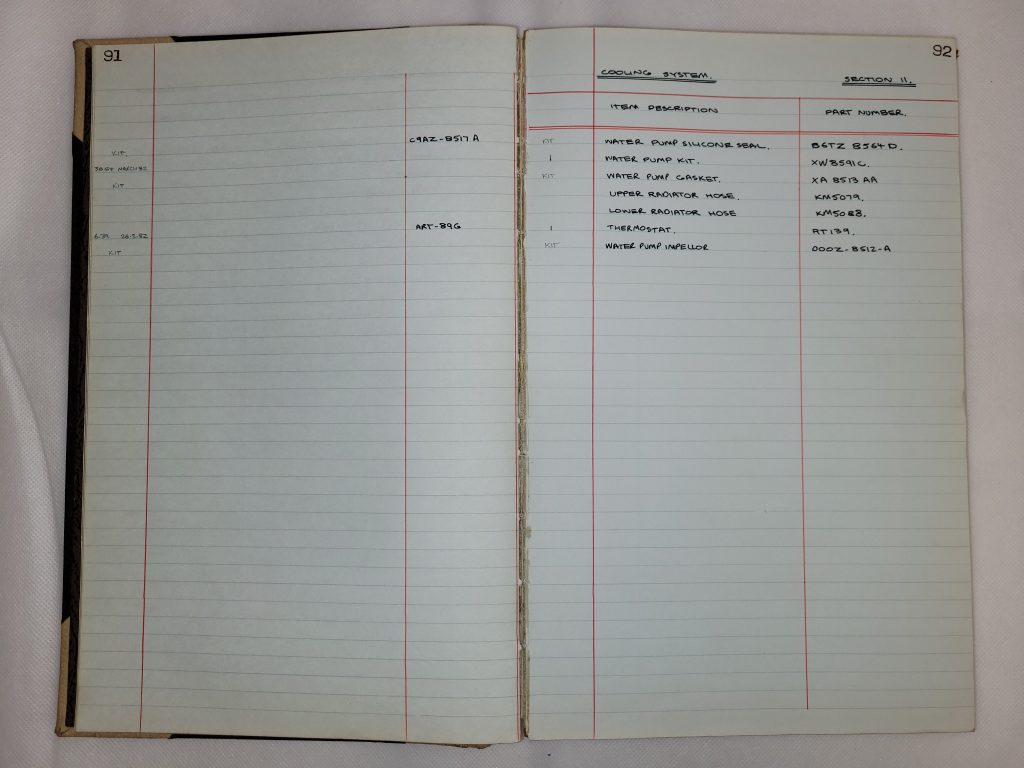 91
C9AZ-8517A
KIT.
30.54 MARCH 82
KIT
ART-89G
26-2-82
KIT
92
COOLING SYSTEM.
SECTION 11.
ITEM DESCRIPTION PART NUMBER.
KIT WATER PUMP SILICONE SEAL. B6TZ 8564 D.
1 WATER PUMP KIT. XW8591C.
KIT WATER PUMP GASKET. XA 8513 AA
UPPER RADIATOR HOSE. KM5079.
LOWER RADIATOR HOSE KM5088.
1 THERMOSTAT. RT139.
KIT WATER PUMP IMPELLOR D00Z-8512-A